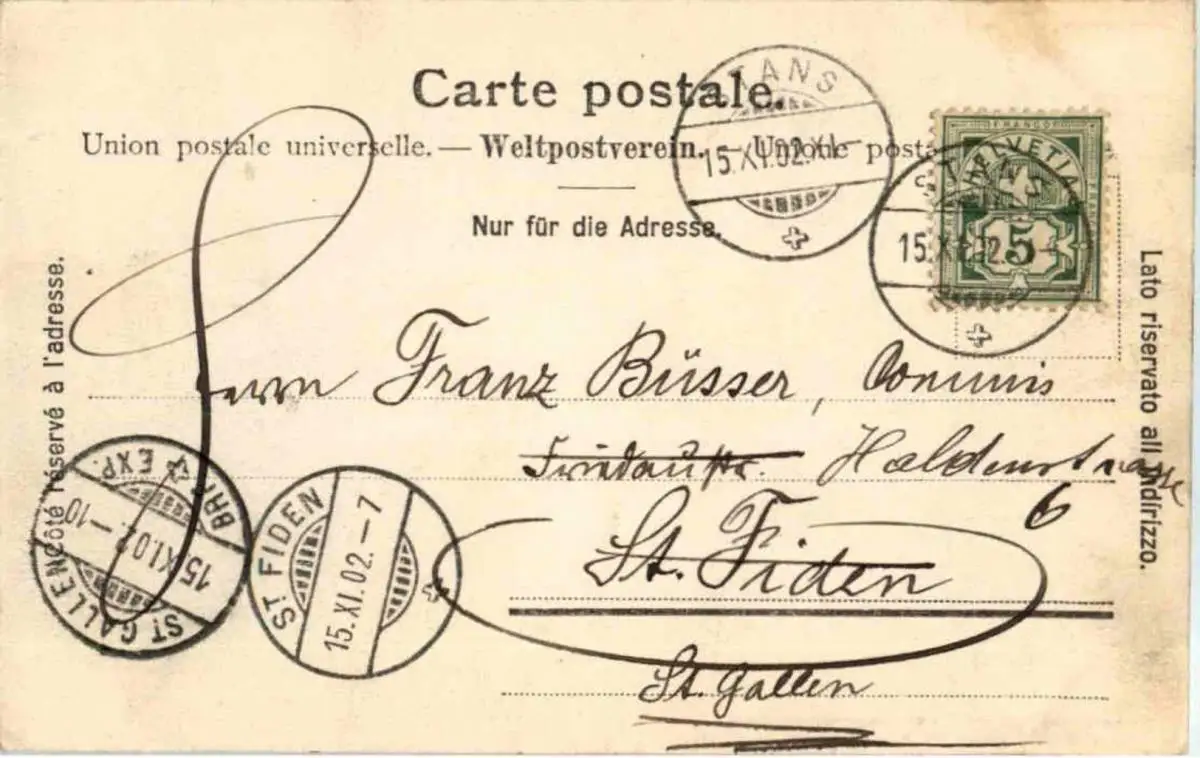 Carte postale.
Union postale universelle. — Weltpostverein. — Unione posta
Nur für die Adresse.
Côté réservé à l'adresse.
Lato riservato all'indirizzo.
STANS
15.XI.02.XI-
FRANCO
HELVETIA
5
STANS
15.XI.02.
Herrn Franz Büsser, Commis
Friedaustr. Haldenstrasse
6
St. Fiden
St. Gallen
ST. GALLEN BRF. EXP.
15.XI.02.-10
ST. FIDEN
15.XI.02.-7